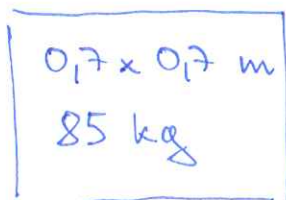 0,7 x 0,7 m
85 kg